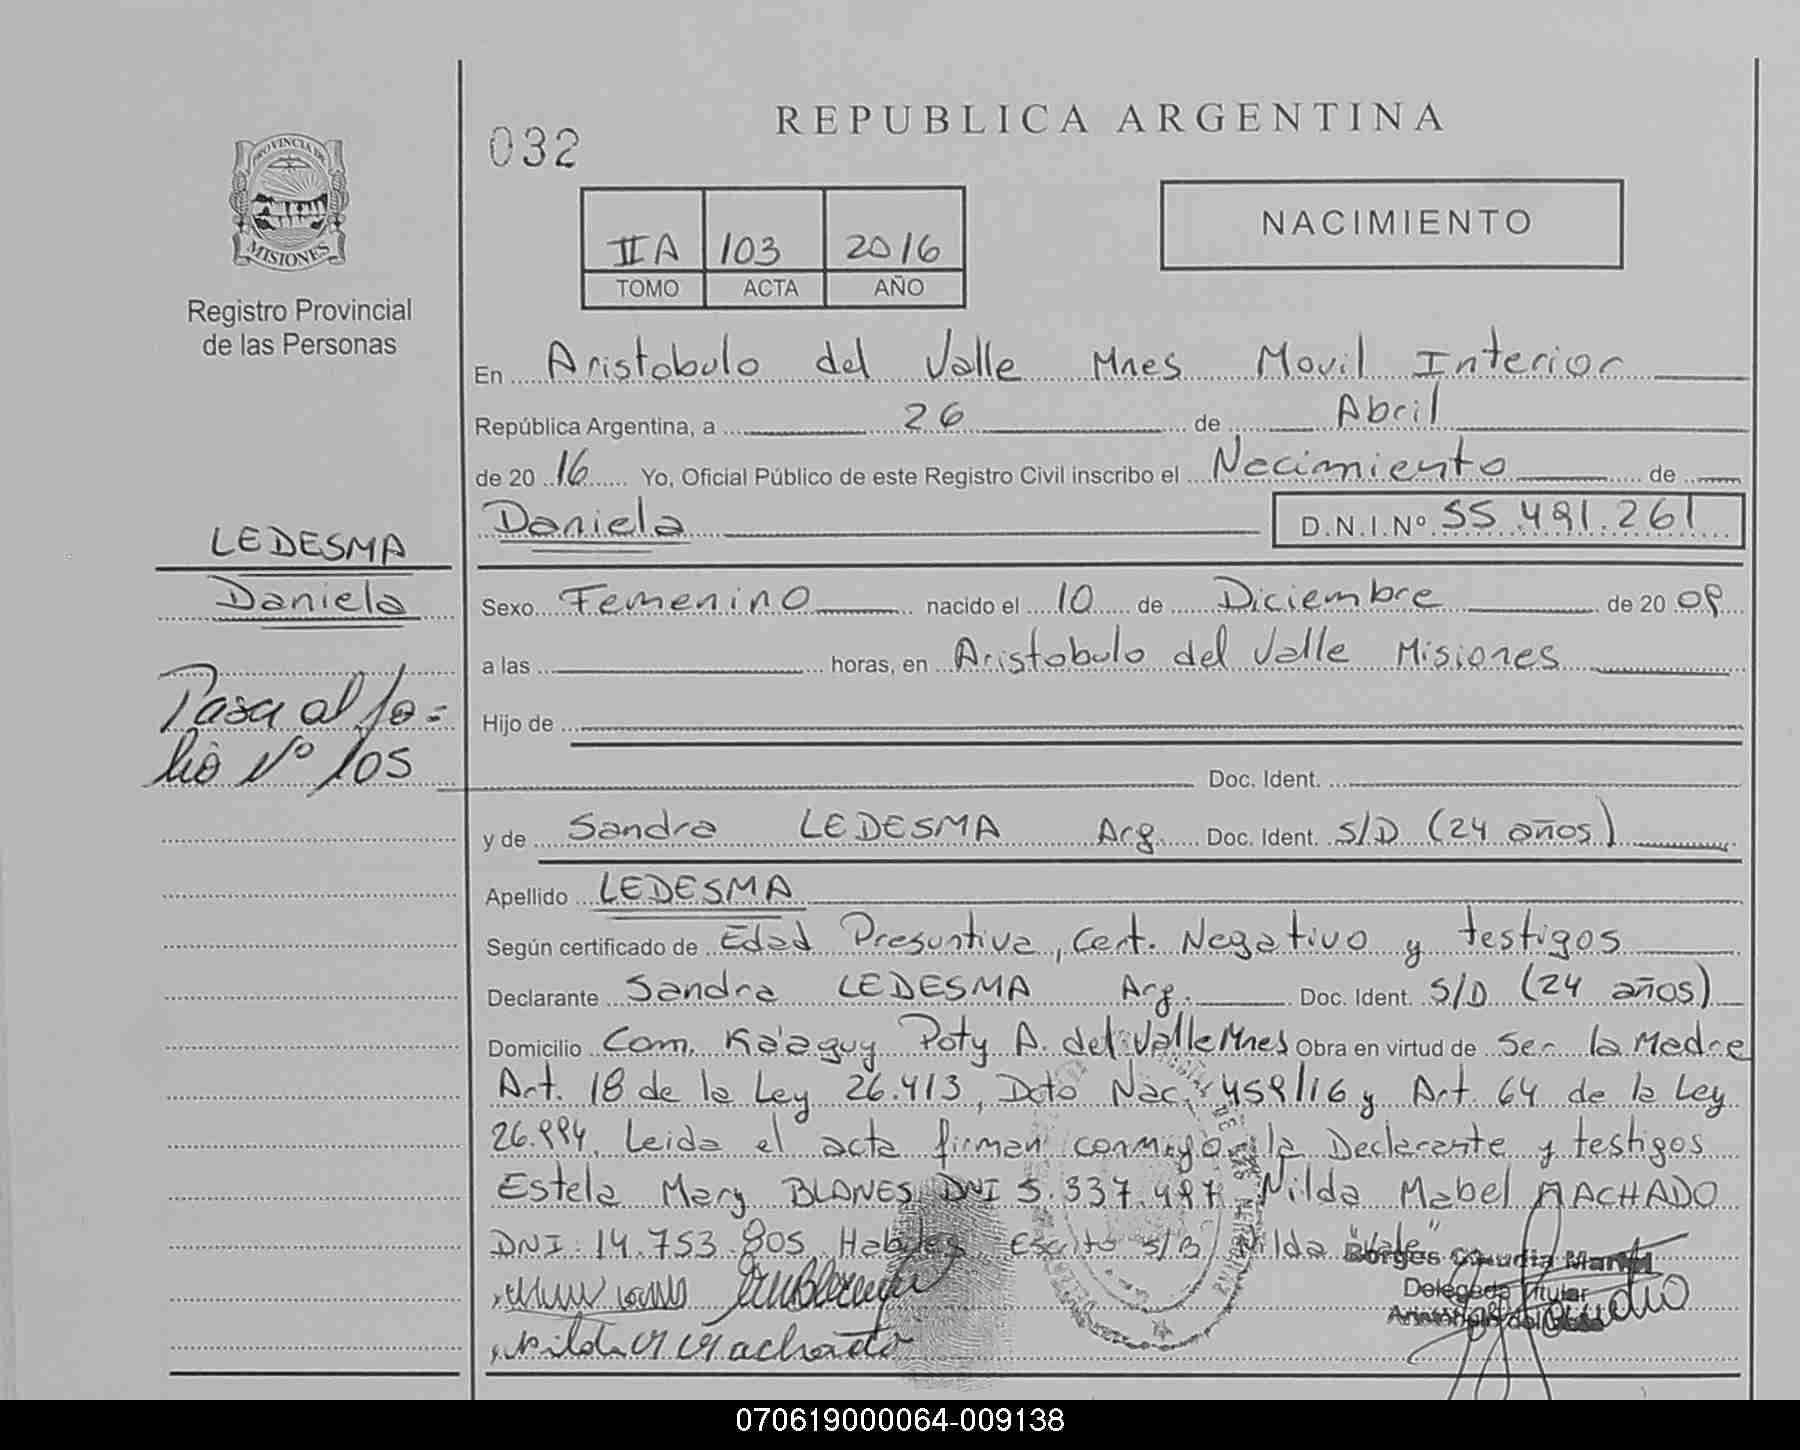 PROVINCIA DE
MISIONES
Registro Provincial
de las Personas
032
REPUBLICA ARGENTINA
II A 103 2016
TOMO ACTA AÑO
NACIMIENTO
En Aristobulo del Valle Mnes Movil Interior
República Argentina, a 26 de Abril
de 20 16 Yo, Oficial Público de este Registro Civil inscribo el Necimiento de
Daniela D.N.I.Nº 55.491.261
LEDESMA
Daniela
Pasa al fo=
lio Nº 105
Sexo Femenino nacido el 10 de Diciembre de 20 09
a las horas, en Aristobulo del Valle Misiones
Hijo de
Doc. Ident.
y de Sandra LEDESMA Arg. Doc. Ident. S/D (24 años)
Apellido LEDESMA
Según certificado de Edad Presuntiva, Cert. Negativo y testigos
Declarante Sandra LEDESMA Arg. Doc. Ident. S/D (24 años)
Domicilio Com. Ka'aguy Poty A. del Valle Mnes Obra en virtud de Ser la Madre
Art. 18 de la Ley 26.413, Dcto Nac. 459/16 y Art. 64 de la Ley
26.994. Leida el acta firman conmigo la Declarante y testigos
Estela Mary BLANES DNI 5.337.497 Nilda Mabel MACHADO
DNI: 14.753.805 Habiles Escrito S/B Nilda "Vale"
Borges Claudia
Delegada Titular
Aristóbulo del Valle
Nilda M Machado
070619000064-009138